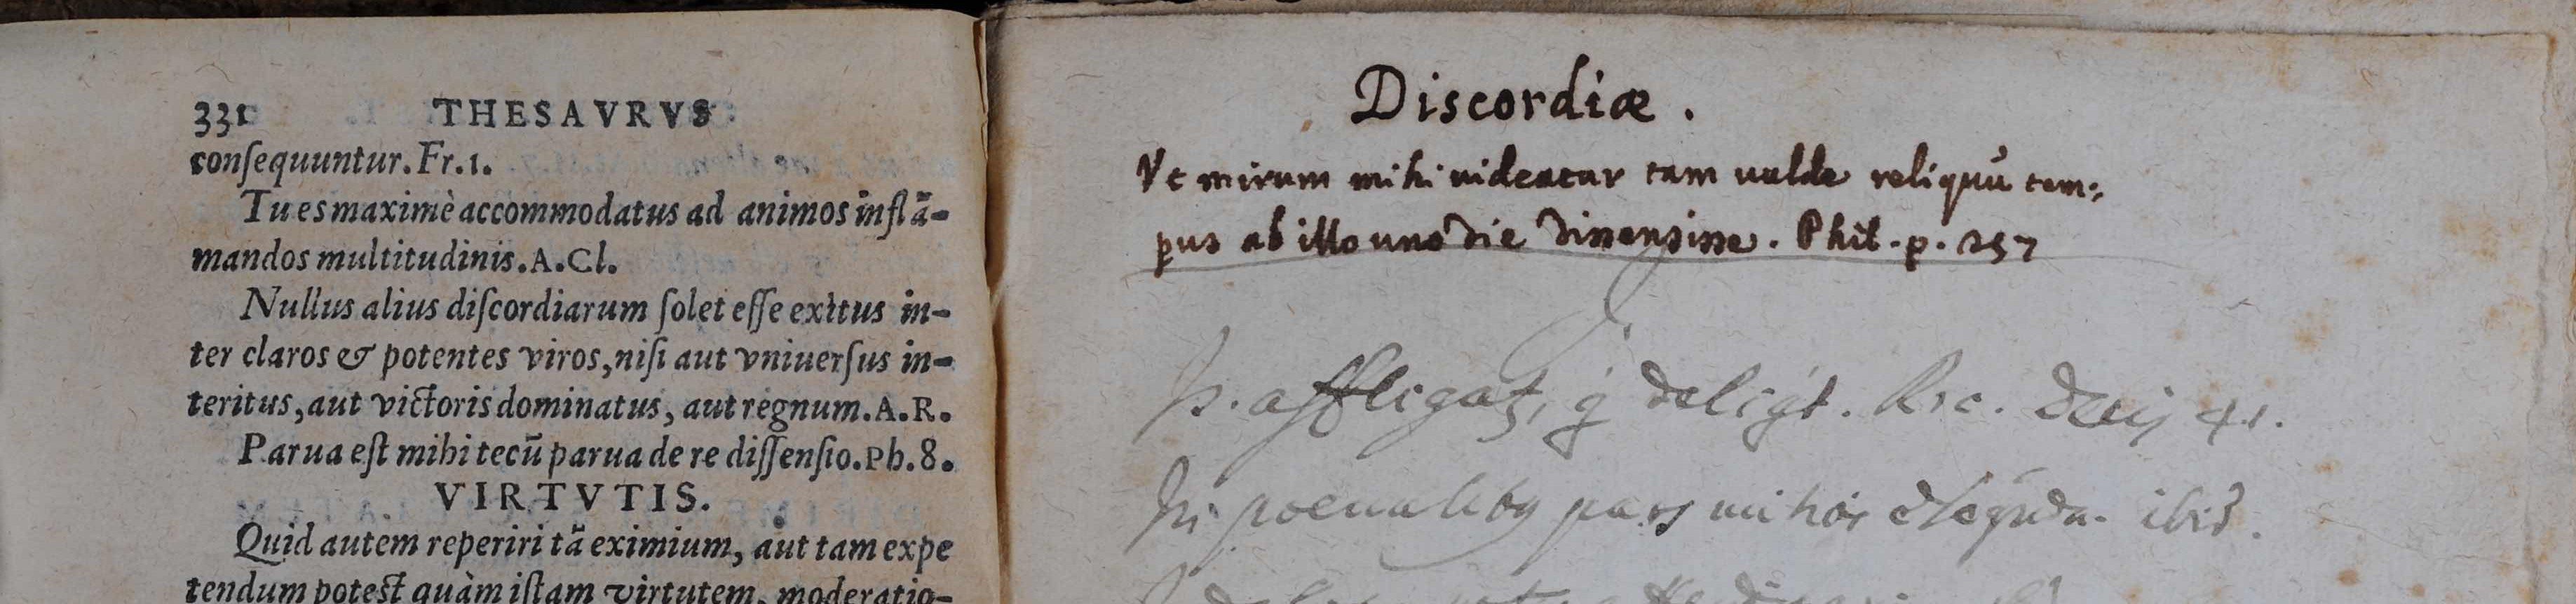 331 THESAVRVS
conſequuntur. Fr. 1.
Tu es maximè accommodatus ad animos inflã-
mandos multitudinis. A. Cl.
Nullus alius diſcordiarum ſolet eſſe exitus in-
ter claros & potentes viros, niſi aut vniuerſus in-
teritus, aut victoris dominatus, aut regnum. A. R.
Parua eſt mihi tecũ parua de re diſſenſio. Ph. 8.
VIRTVTIS.
Quid autem reperiri tã eximium, aut tam expe
tendum potest quàm iſtam virtutem, moderatio-
Discordiæ.
Vt mirum mihi uideatur tam ualde reliquũ tem:
pus ab illo uno die dissensisse. Phil. p. 257
affligat, q̃
pars
ibid.